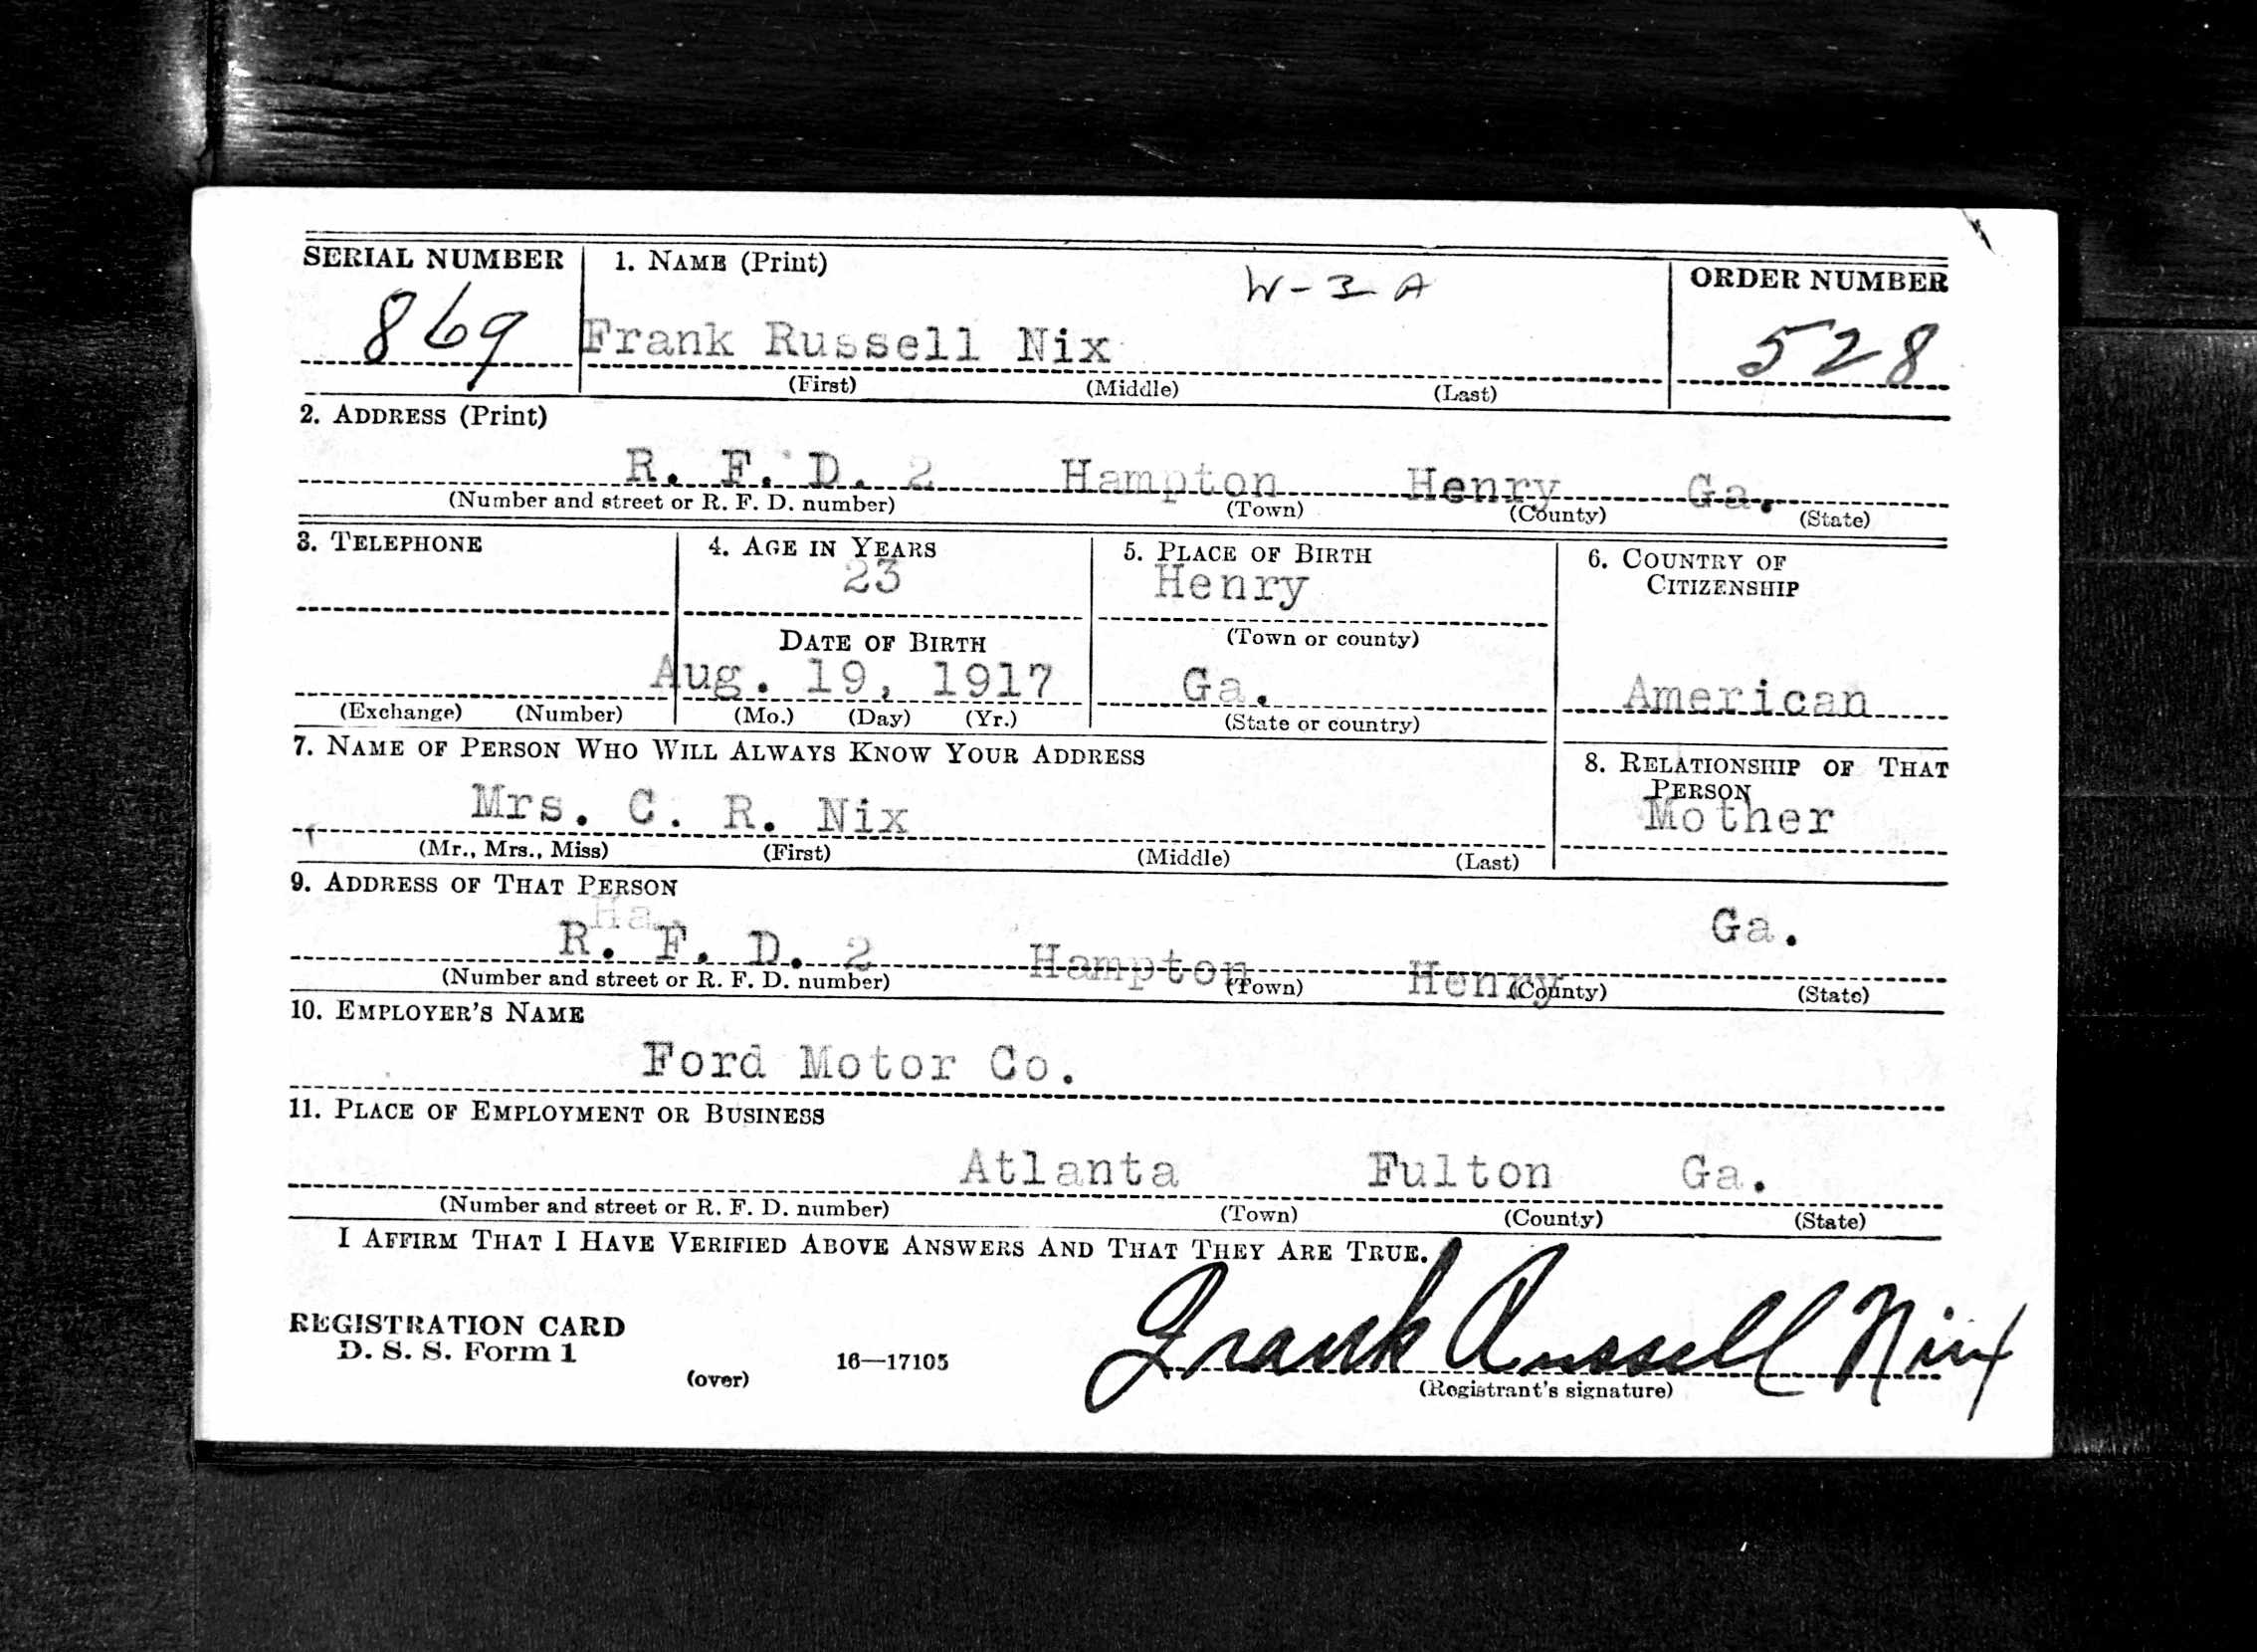 SERIAL NUMBER 1. NAME (Print) W-3 A ORDER NUMBER
869 Frank Russell Nix 528
(First) (Middle) (Last)
2. ADDRESS (Print)
R. F. D. 2 Hampton Henry Ga.
(Number and street or R. F. D. number) (Town) (County) (State)
3. TELEPHONE 4. AGE IN YEARS 5. PLACE OF BIRTH 6. COUNTRY OF
23 Henry CITIZENSHIP
DATE OF BIRTH (Town or county)
Aug. 19, 1917 Ga. American
(Exchange) (Number) (Mo.) (Day) (Yr.) (State or country)
7. NAME OF PERSON WHO WILL ALWAYS KNOW YOUR ADDRESS 8. RELATIONSHIP OF THAT
PERSON
Mrs. C. R. Nix Mother
(Mr., Mrs., Miss) (First) (Middle) (Last)
9. ADDRESS OF THAT PERSON
Ha
R. F. D. 2 Hampton Henry Ga.
(Number and street or R. F. D. number) (Town) (County) (State)
10. EMPLOYER'S NAME
Ford Motor Co.
11. PLACE OF EMPLOYMENT OR BUSINESS
Atlanta Fulton Ga.
(Number and street or R. F. D. number) (Town) (County) (State)
I AFFIRM THAT I HAVE VERIFIED ABOVE ANSWERS AND THAT THEY ARE TRUE.
REGISTRATION CARD
D. S. S. Form 1 16—17105 Frank Russell Nix
(over) (Registrant's signature)